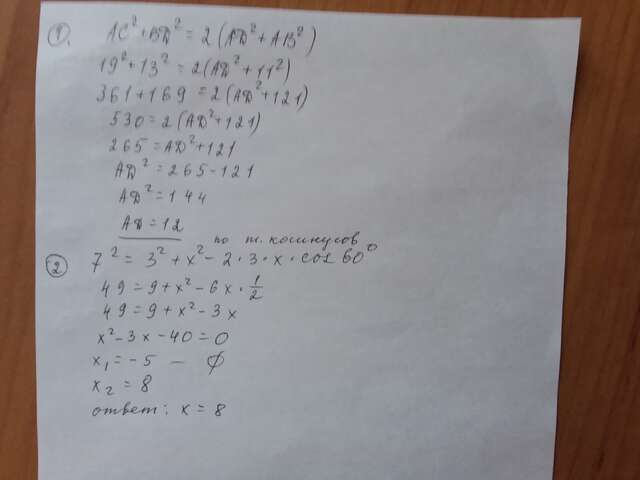 1. AC² + BD² = 2(AD² + AB²)
19² + 13² = 2(AD² + 11²)
361 + 169 = 2(AD² + 121)
530 = 2(AD² + 121)
265 = AD² + 121
AD² = 265 - 121
AD² = 144
AD = 12
по т. косинусов
2 7² = 3² + x² - 2 · 3 · x · cos 60°
49 = 9 + x² - 6x · 1/2
49 = 9 + x² - 3x
x² - 3x - 40 = 0
x₁ = -5 — ∅
x₂ = 8
ответ: x = 8